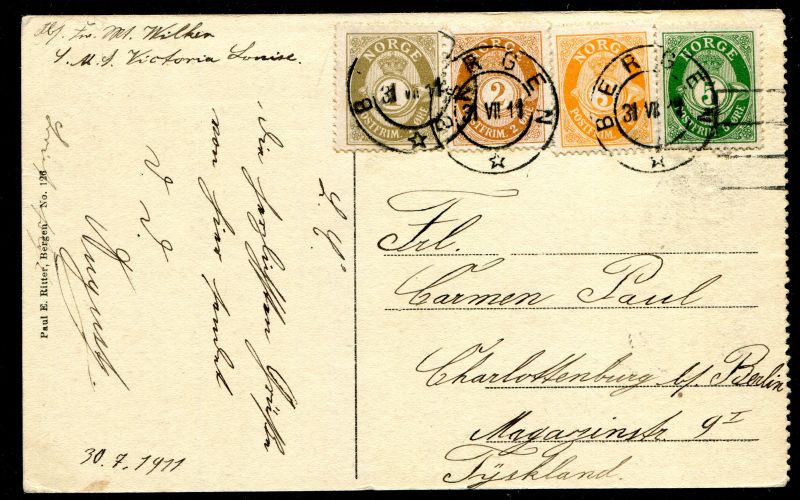 Victoria Louise.
NORGE
1
POSTFRIM. 1 ØRE
NORGE
2
POSTFRIM. 2
3
POSTFRIM.
NORGE
5
POSTFRIM. 5 ØRE
BERGEN
31 VII 11
BERGEN
31 VII 11
BERGEN
31 VII 11
Paul E. Ritter, Bergen No. 126
L. P.
Die herzlichsten Grüße
von hier sendet
August.
30.7.1911
Frl.
Carmen Paul
Charlottenburg b/ Berlin
Magazinstr 9 I
Tyskland.